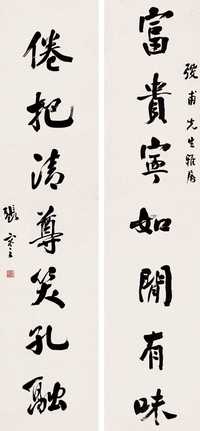 甫先生雅屬
富貴寧如閒有味
倦把清尊笑孔融
張